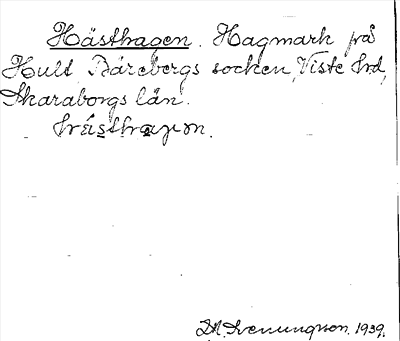 Hästhagen. Hagmark på
Hult, Bärebergs socken, Viste hrd,
Skaraborgs län.
hästhagen.
M. Svenungsson. 1939.